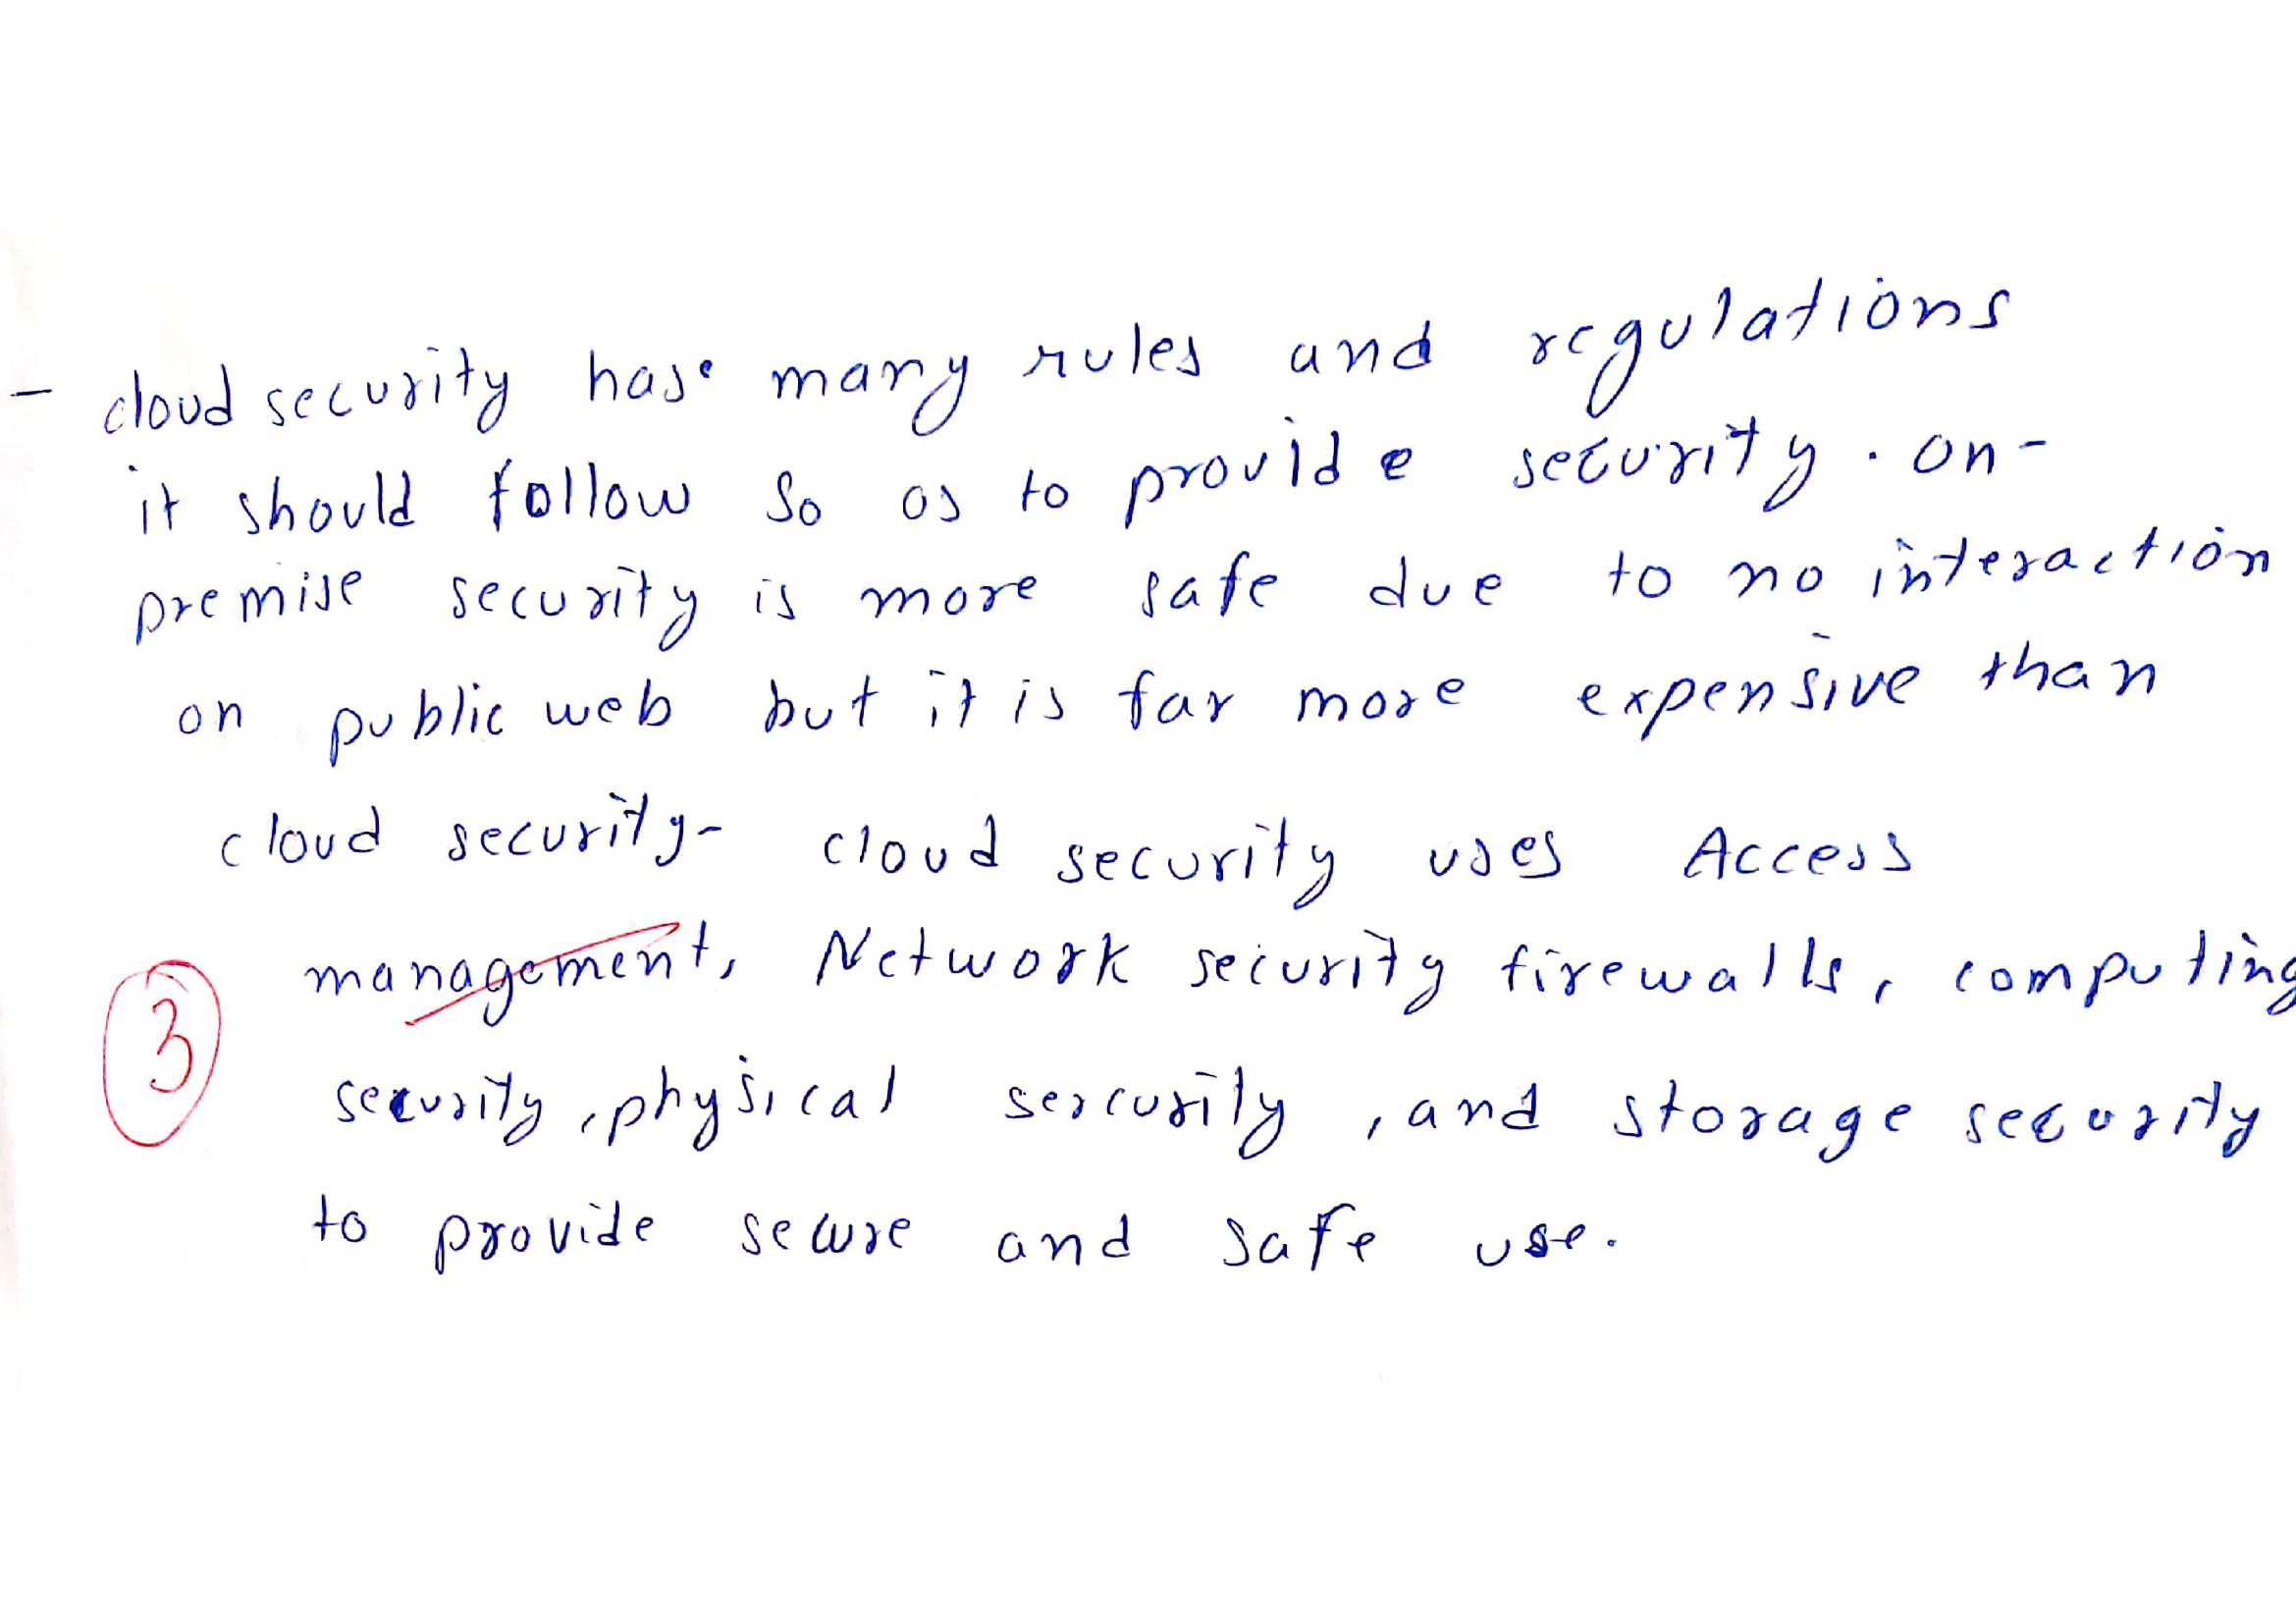 - cloud security has many rules and regulations
it should follow so as to provide security. on-
premise security is more safe due to no interaction
on public web but it is far more expensive than
cloud security- cloud security uses Access
management, Network security firewalls, computing
3
security, physical sercurity, and storage security
to provide secure and safe use.